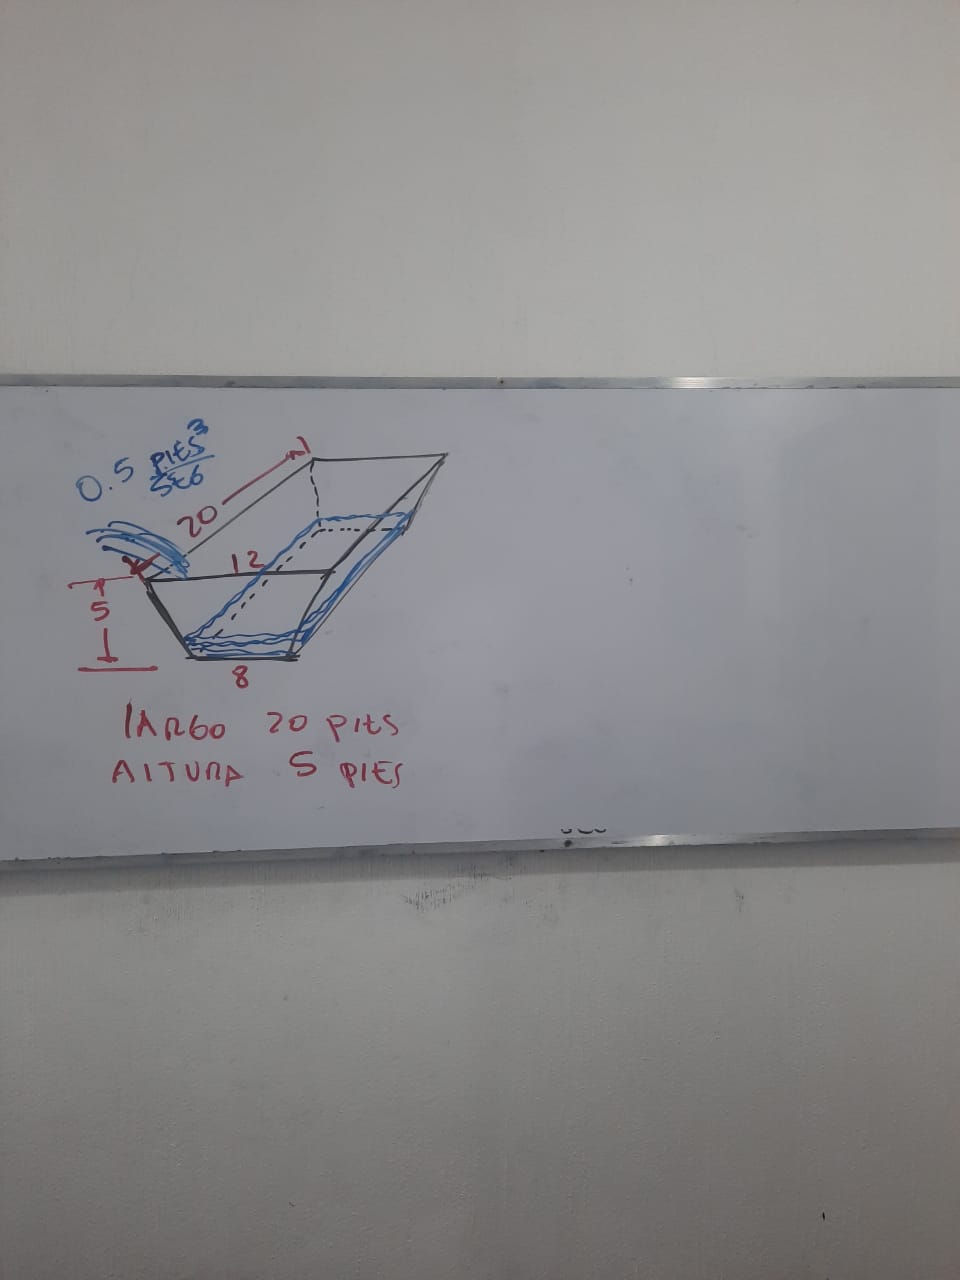 0.5 PIES³/SEG
20
12
5
8
LARGO 20 PIES
ALTURA 5 PIES